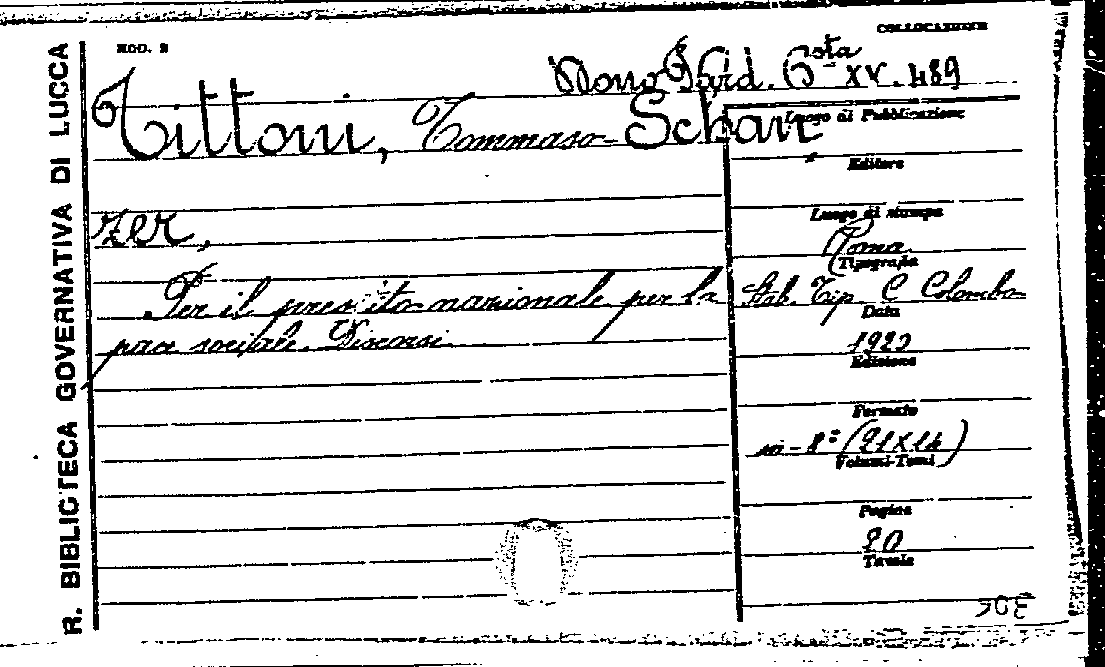 R. BIBLIOTECA GOVERNATIVA DI LUCCA
MOD. 2
COLLOCAZIONE
Busta XV. 489
Tittoni, Tommaso - Schan,
zer,
Per il prestito nazionale per la
pace sociale. Discorsi
Luogo di Pubblicazione
Editore
Luogo di stampa
Roma
Tipografia
Stab. Tip. C Colombo
Data
1920
Edizione
Formato
in - 8º (21X14)
Volumi-Tomi
Pagine
20
Tavole